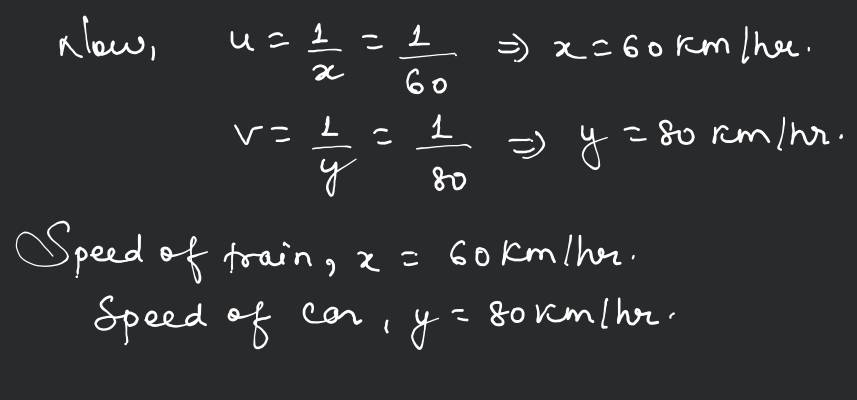 Now, u = 1/x = 1/60 ⇒ x = 60 km/hr.
v = 1/y = 1/80 ⇒ y = 80 km/hr.
Speed of train, x = 60 km/hr.
Speed of car, y = 80 km/hr.